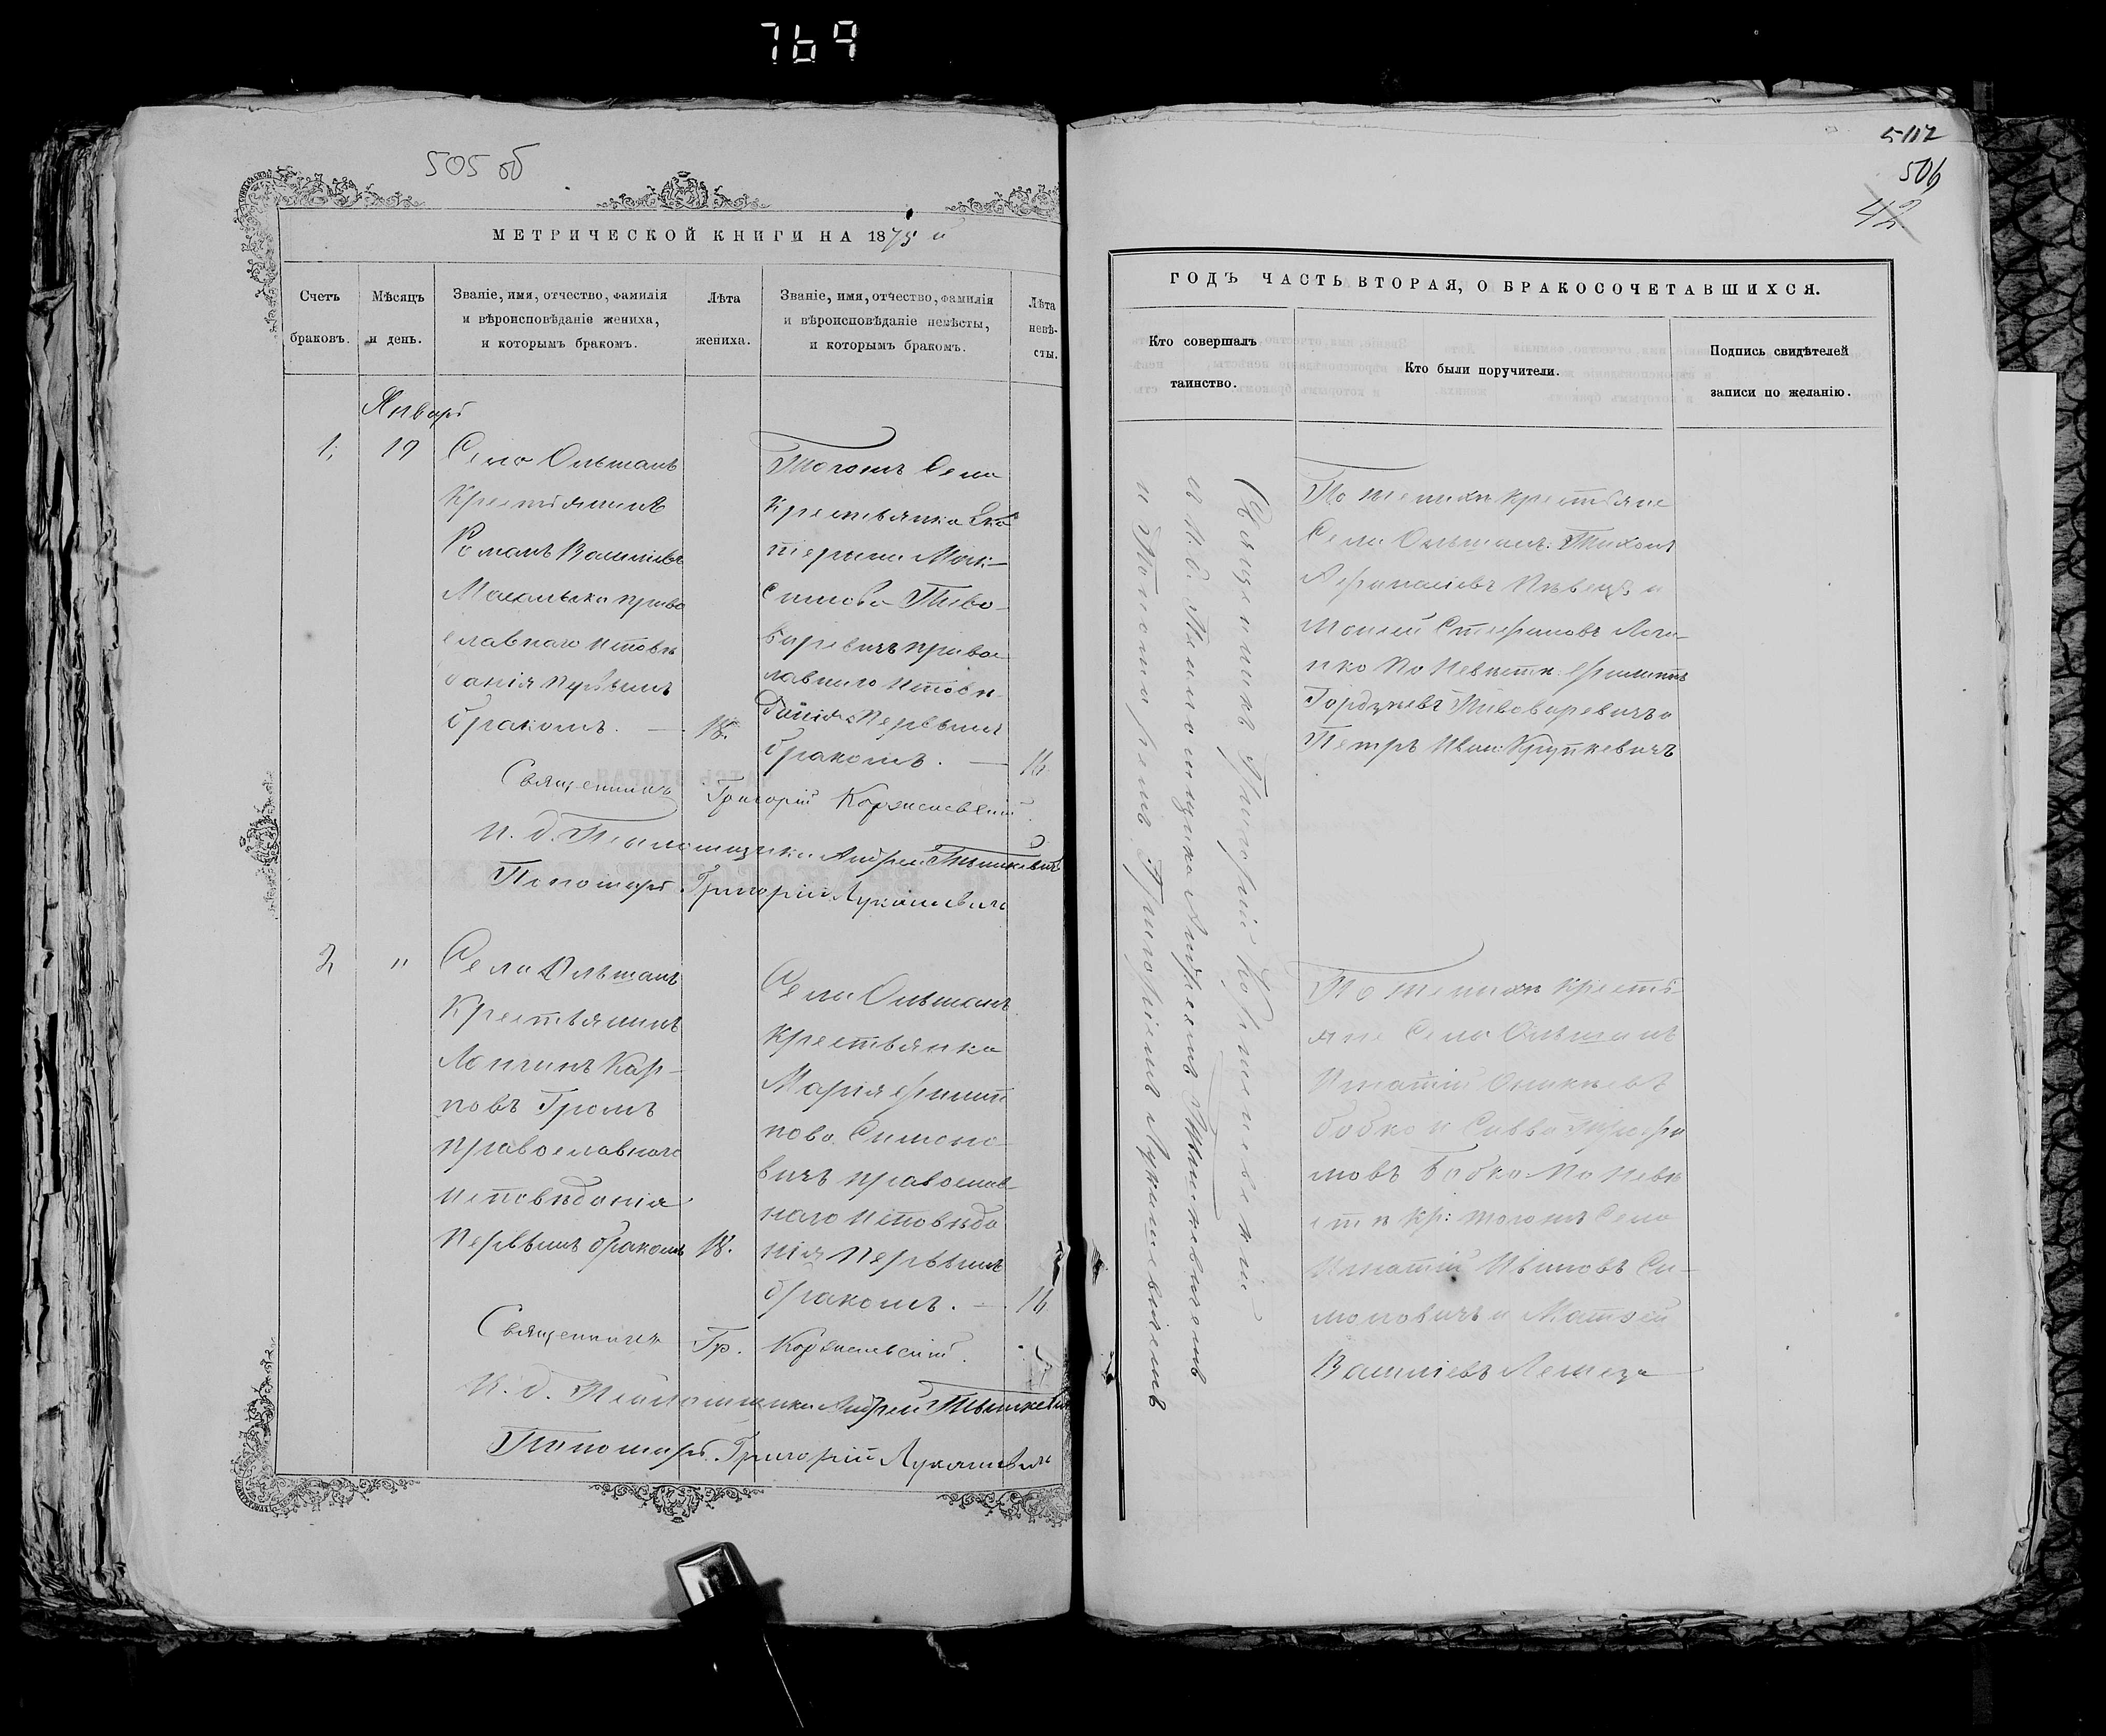 769
505 об
МЕТРИЧЕСКОЙ КНИГИ НА 1875 й
Счетъ
браковъ.
Мѣсяцъ
и день.
Званіе, имя, отчество, фамилія
и вѣроисповѣданіе жениха,
и которымъ бракомъ.
Лѣта
жениха.
Званіе, имя, отчество, фамилія
и вѣроисповѣданіе невѣсты,
и которымъ бракомъ.
Лѣта
невѣ-
сты.
Январь
1, 19
Села Ольшанъ
Крестьянинъ
Романъ Васильевъ
православнаго исповѣ
данія первымъ
бракомъ. — 18.
Тогожъ Села
Крестьянка Ека
терина Мак-
симова Пиво-
варевичъ правос
лавнаго исповѣ-
данія первымъ
бракомъ. — 16
Священникъ Григорій Корженевскій.
И. д. Псаломщика Андрей Тышкевичъ
Пономарь Григорій Лукашевичъ
2, "
Села Ольшанъ
Крестьянинъ
Лонгинъ Кар-
повъ Громъ
православнаго
исповѣданія
первымъ бракомъ 18.
Села Ольшанъ
Крестьянка
Марія Филип
пова Симоно-
вичъ православ-
наго исповѣда
нія первымъ
бракомъ. — 16
Священникъ Гр. Корженевскій.
И. д. Псаломщика Андрей Тышкевичъ
Пономарь Григорій Лукашевичъ
506
42
ГОДЪ ЧАСТЬ ВТОРАЯ, О БРАКОСОЧЕТАВШИХСЯ.
Кто совершалъ
таинство.
Кто были поручители.
Подпись свидѣтелей
записи по желанію.
Священникъ Григорій Корженевскій
съ И. д. Псаломщика Андреемъ Тышкевичемъ
и Пономаремъ Григоріемъ Лукашевичемъ
По женихѣ крестьяне
Села Ольшанъ: Тихонъ
Афанасіевъ Пѣвецъ и
Моисей Стефановъ
По Невѣстѣ Филиппъ
Гордѣевъ Пивоваревичъ и
Петръ Иван: Крупкевичъ
По женихѣ кресть-
яне Села Ольшанъ
Игнатій
Бобко и Савва Трофи
мовъ Бобко По Невѣ
стѣ Кр: тогожъ Села
Игнатій Ивановъ Си-
моновичъ и Матвей
Васильевъ